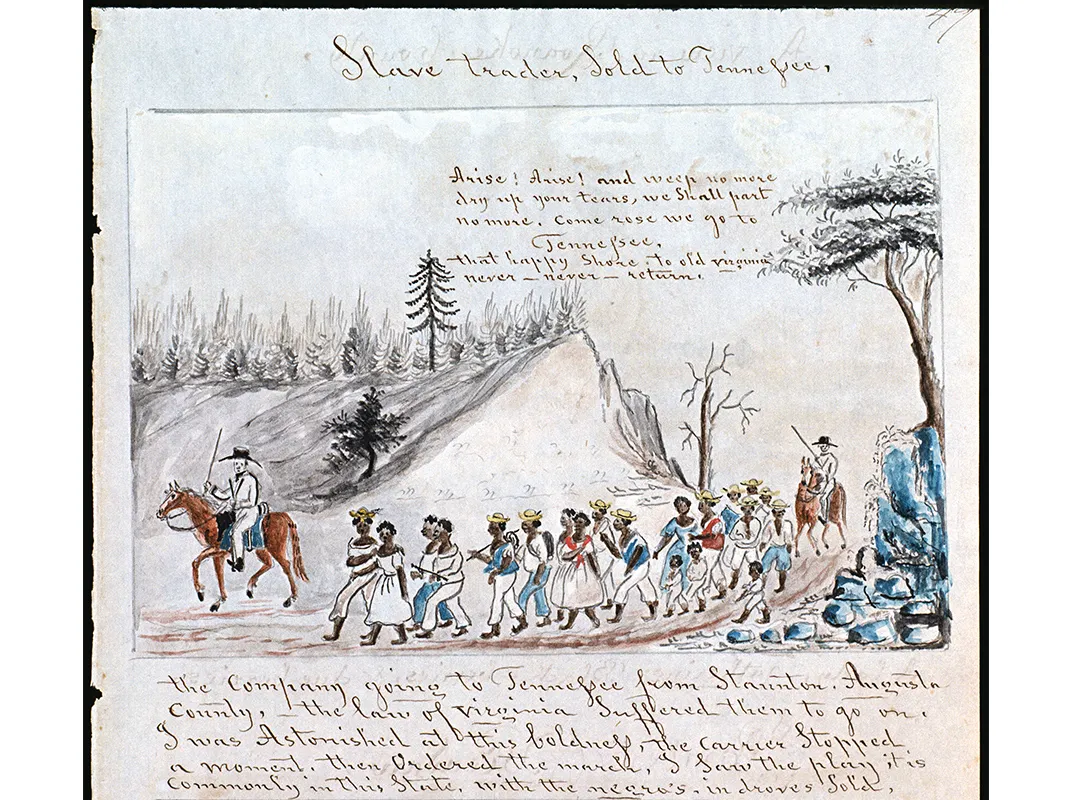 Slave trader, Sold to Tennessee,
Arise! Arise! and weep no more
dry up your tears, we Shall part
no more. Come rose we go to
Tennessee,
that happy Shore. to old virginia
never - never - return.
the Company going to Tennessee from Staunton. Augusta
County, - the law of virginia Suffered them to go on.
I was Astonished at this boldness, the carrier Stopped
a moment. then Ordered the march, I Saw the play it is
Commonly in this State, with the negro's, in droves Sold,